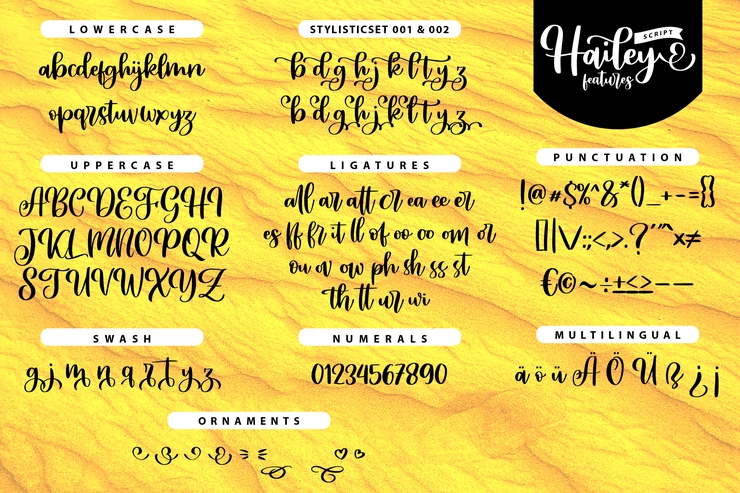 LOWERCASE
abcdefghijklmn
opqrstuvwxyz
STYLISTICSET 001 & 002
b d g h j k l t y z
b d g h j k l t y z
Hailey
SCRIPT
features
UPPERCASE
ABCDEFGHI
JKLMNOPQR
STUVWXYZ
LIGATURES
all ar att cr ea ee er
es ff fr it ll of oo oo om or
ou ov ow ph sh ss st
th tt ur wi
PUNCTUATION
!@#$%^&*()_+-={}
[]|\/:;<,>.?'"^×≠
€©~÷±<>——
SWASH
g j m n q r t y z
NUMERALS
01234567890
MULTILINGUAL
ä ö ü Ä Ö Ü ß ¿ ¡
ORNAMENTS